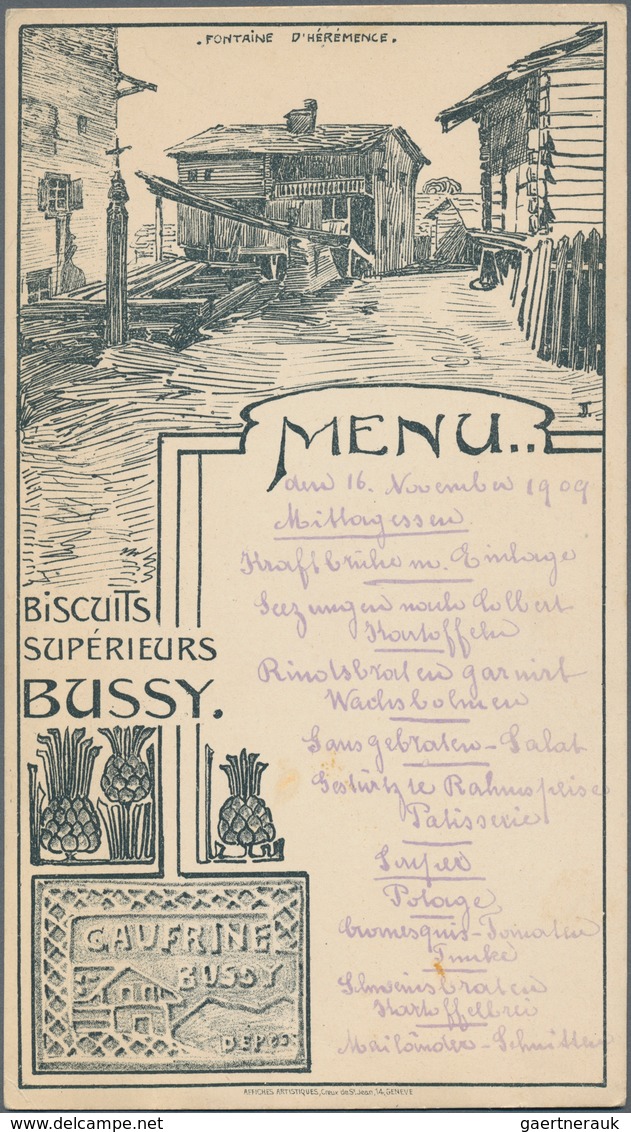 . FONTAINE D'HÉRÉMENCE .
MENU..
den 16. November 1909
Mittagessen
Kraftbrühe m. Einlage
Seezungen nach Colbert
Kartoffeln
Rindsbraten garnirt
Wachsbohnen
Gans gebraten - Salat
Gestürtzte Rahmspeise
Patisserie
Souper
Potage
Cromesquis - Tomaten
Schweinsbraten
Kartoffelbrei
Mailänder - Schnitten
BISCUITS
SUPÉRIEURS
BUSSY.
GAUFRINE
BUSSY
AFFICHES ARTISTIQUES, Creux de St. Jean, 14, GENÈVE
www.delcampe.net
gaertnerauk